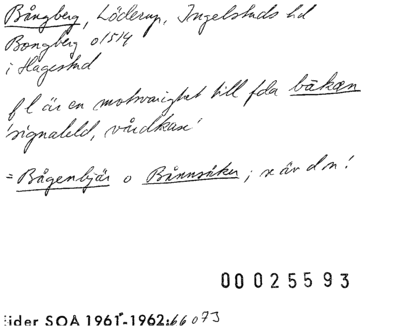 Bångberg, Löderup, Ingelstads hd
Bongberg 01514
i Hagestad
fl är en motsvarighet till fda båkan
'signaleld, vårdkase'
= Bågenbjär o Bånnsåker; x är d n!
00025593
ider SOÅ 1961-1962:66 073